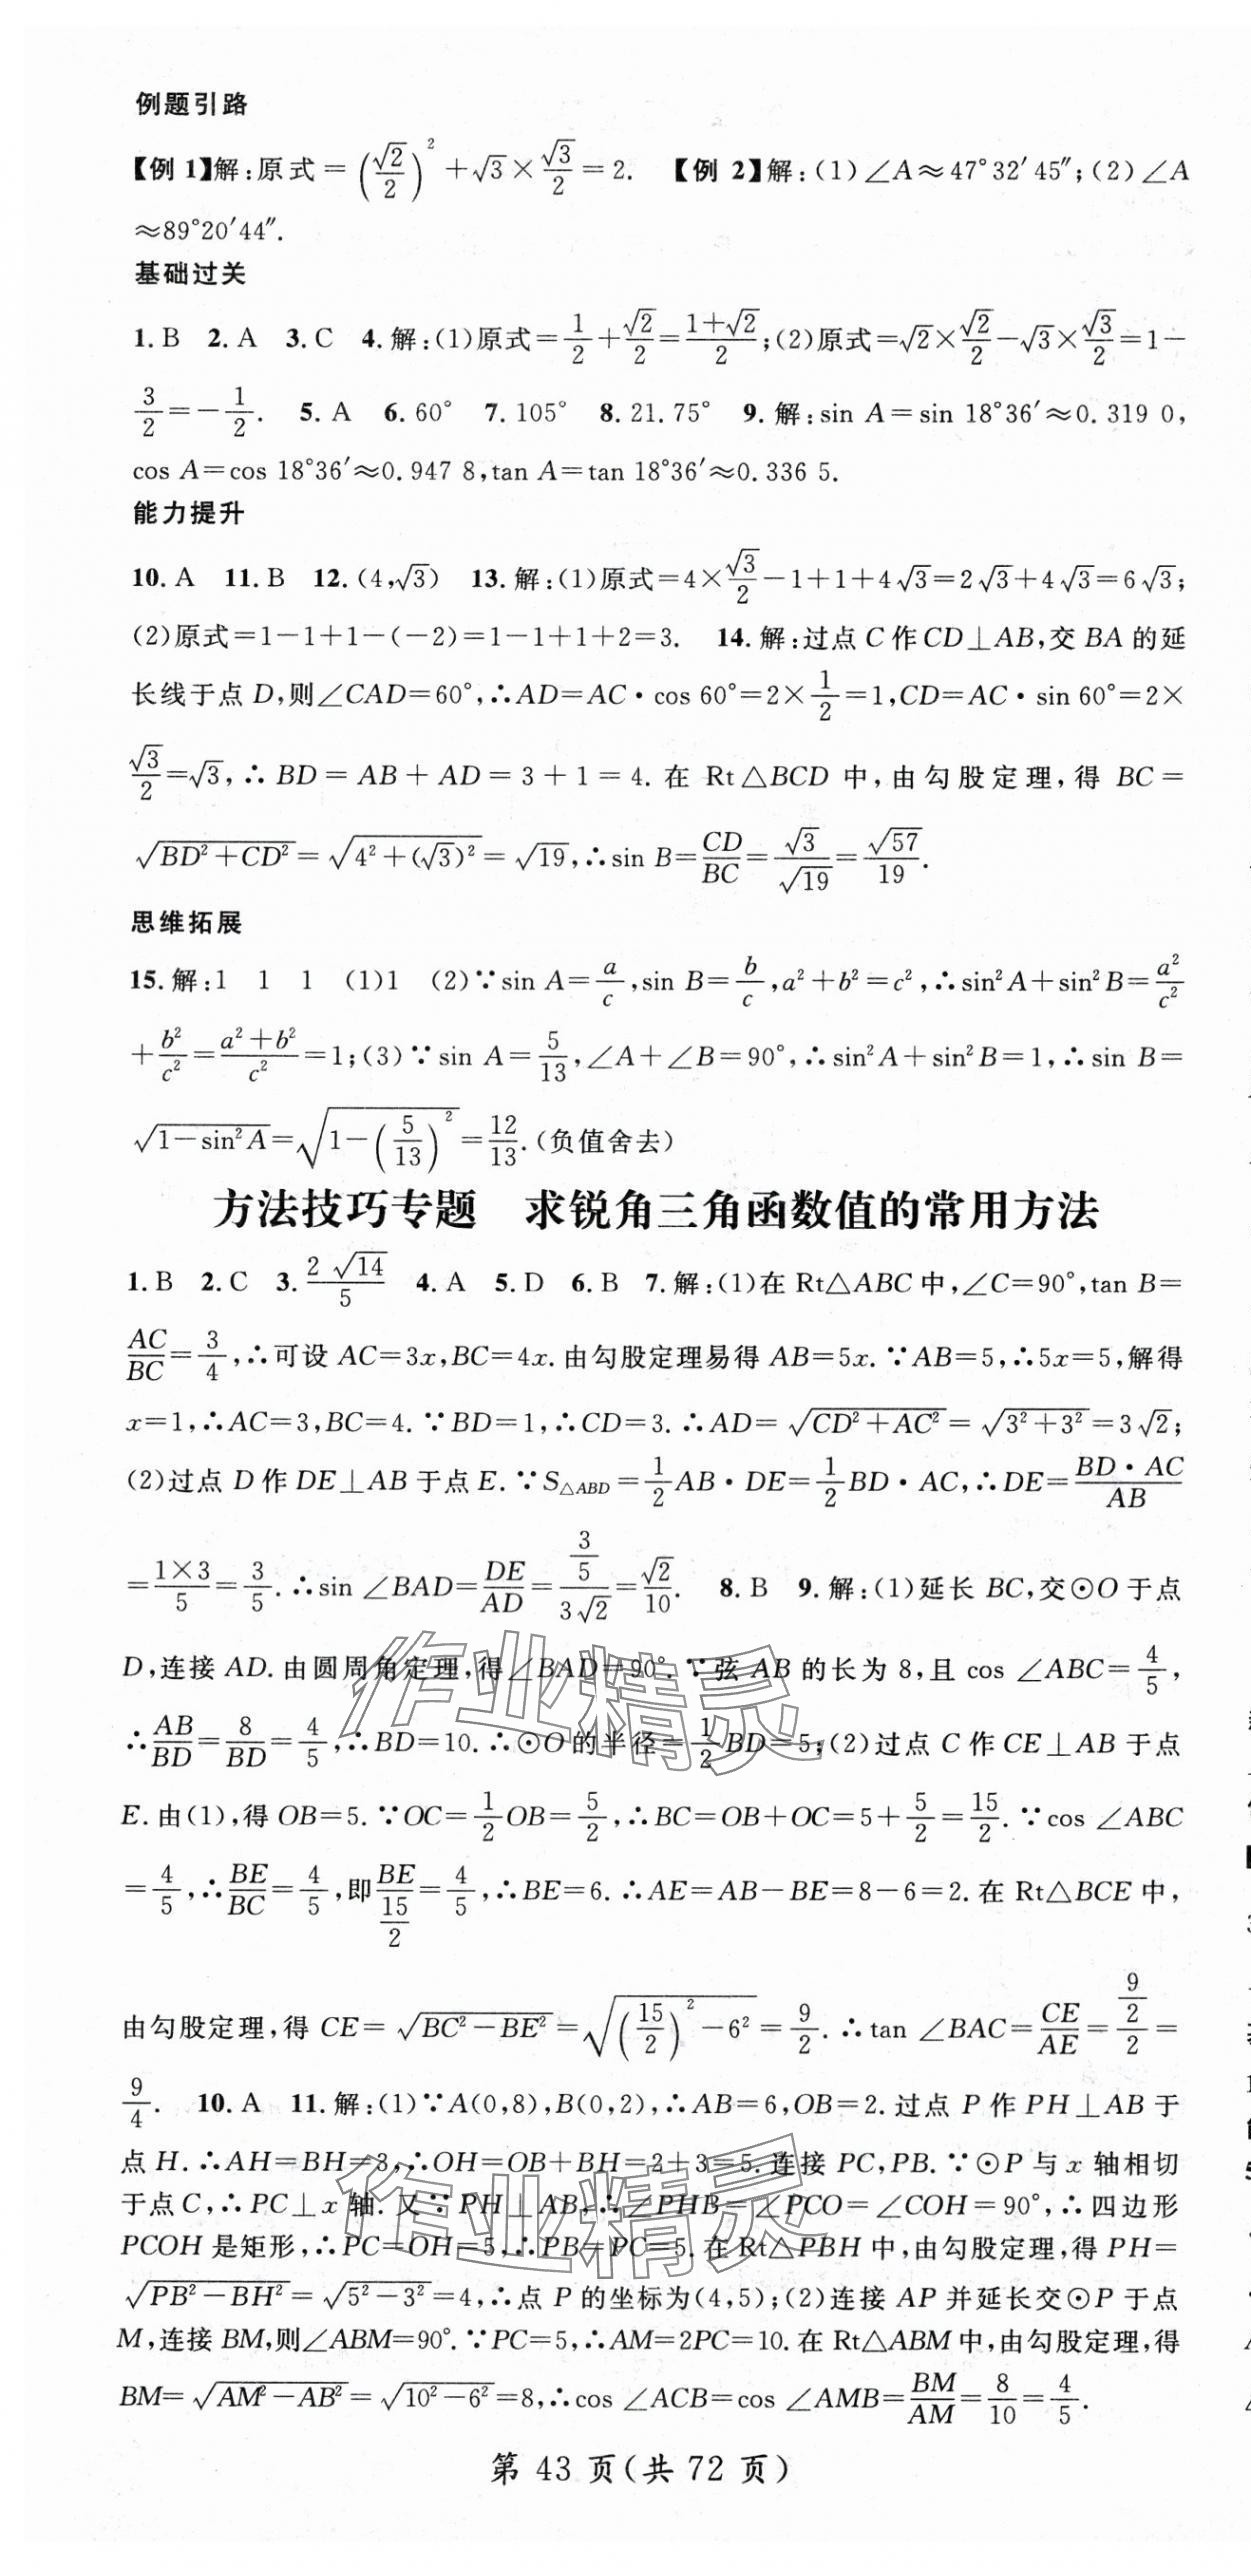 例题引路
【例 1】解:原式=(√2/2)²+√3×√3/2=2. 【例 2】解:(1)∠A≈47°32′45″;(2)∠A
≈89°20′44″.
基础过关
1.B 2.A 3.C 4.解:(1)原式=1/2+√2/2=(1+√2)/2;(2)原式=√2×√2/2-√3×√3/2=1-
3/2=-1/2. 5.A 6.60° 7.105° 8.21.75° 9.解:sin A=sin 18°36′≈0.319 0,
cos A=cos 18°36′≈0.947 8,tan A=tan 18°36′≈0.336 5.
能力提升
10.A 11.B 12.(4,√3) 13.解:(1)原式=4×√3/2-1+1+4√3=2√3+4√3=6√3;
(2)原式=1-1+1-(-2)=1-1+1+2=3. 14.解:过点 C 作 CD⊥AB,交 BA 的延
长线于点 D,则∠CAD=60°,∴AD=AC·cos 60°=2×1/2=1,CD=AC·sin 60°=2×
√3/2=√3,∴BD=AB+AD=3+1=4.在 Rt△BCD 中,由勾股定理,得 BC=
√(BD²+CD²)=√(4²+(√3)²)=√19,∴sin B=CD/BC=√3/√19=√57/19.
思维拓展
15.解:1 1 1 (1)1 (2)∵sin A=a/c,sin B=b/c,a²+b²=c²,∴sin²A+sin²B=a²/c²
+b²/c²=(a²+b²)/c²=1;(3)∵sin A=5/13,∠A+∠B=90°,∴sin²A+sin²B=1,∴sin B=
√(1-sin²A)=√(1-(5/13)²)=12/13.(负值舍去)
方法技巧专题 求锐角三角函数值的常用方法
1.B 2.C 3.2√14/5 4.A 5.D 6.B 7.解:(1)在 Rt△ABC 中,∠C=90°,tan B=
AC/BC=3/4,∴可设 AC=3x,BC=4x.由勾股定理易得 AB=5x.∵AB=5,∴5x=5,解得
x=1,∴AC=3,BC=4.∵BD=1,∴CD=3.∴AD=√(CD²+AC²)=√(3²+3²)=3√2;
(2)过点 D 作 DE⊥AB 于点 E.∵S△ABD=1/2AB·DE=1/2BD·AC,∴DE=BD·AC/AB
=1×3/5=3/5.∴sin ∠BAD=DE/AD=(3/5)/(3√2)=√2/10. 8.B 9.解:(1)延长 BC,交⊙O 于点
D,连接 AD.由圆周角定理,得∠BAD=90°.∵弦 AB 的长为 8,且 cos ∠ABC=4/5,
∴AB/BD=8/BD=4/5,∴BD=10.∴⊙O 的半径=1/2BD=5;(2)过点 C 作 CE⊥AB 于点
E.由(1),得 OB=5.∵OC=1/2OB=5/2,∴BC=OB+OC=5+5/2=15/2.∵cos ∠ABC
=4/5,∴BE/BC=4/5,即BE/(15/2)=4/5,∴BE=6.∴AE=AB-BE=8-6=2.在 Rt△BCE 中,
由勾股定理,得 CE=√(BC²-BE²)=√((15/2)²-6²)=9/2.∴tan ∠BAC=CE/AE=(9/2)/2=
9/4. 10.A 11.解:(1)∵A(0,8),B(0,2),∴AB=6,OB=2.过点 P 作 PH⊥AB 于
点 H.∴AH=BH=3,∴OH=OB+BH=2+3=5.连接 PC,PB.∵⊙P 与 x 轴相切
于点 C,∴PC⊥x 轴.又∵PH⊥AB,∴∠PHB=∠PCO=∠COH=90°,∴四边形
PCOH 是矩形,∴PC=OH=5,∴PB=PC=5.在 Rt△PBH 中,由勾股定理,得 PH=
√(PB²-BH²)=√(5²-3²)=4,∴点 P 的坐标为(4,5);(2)连接 AP 并延长交⊙P 于点
M,连接 BM,则∠ABM=90°.∵PC=5,∴AM=2PC=10.在 Rt△ABM 中,由勾股定理,得
BM=√(AM²-AB²)=√(10²-6²)=8,∴cos ∠ACB=cos ∠AMB=BM/AM=8/10=4/5.
第 43 页(共 72 页)
作业精灵
作业精灵